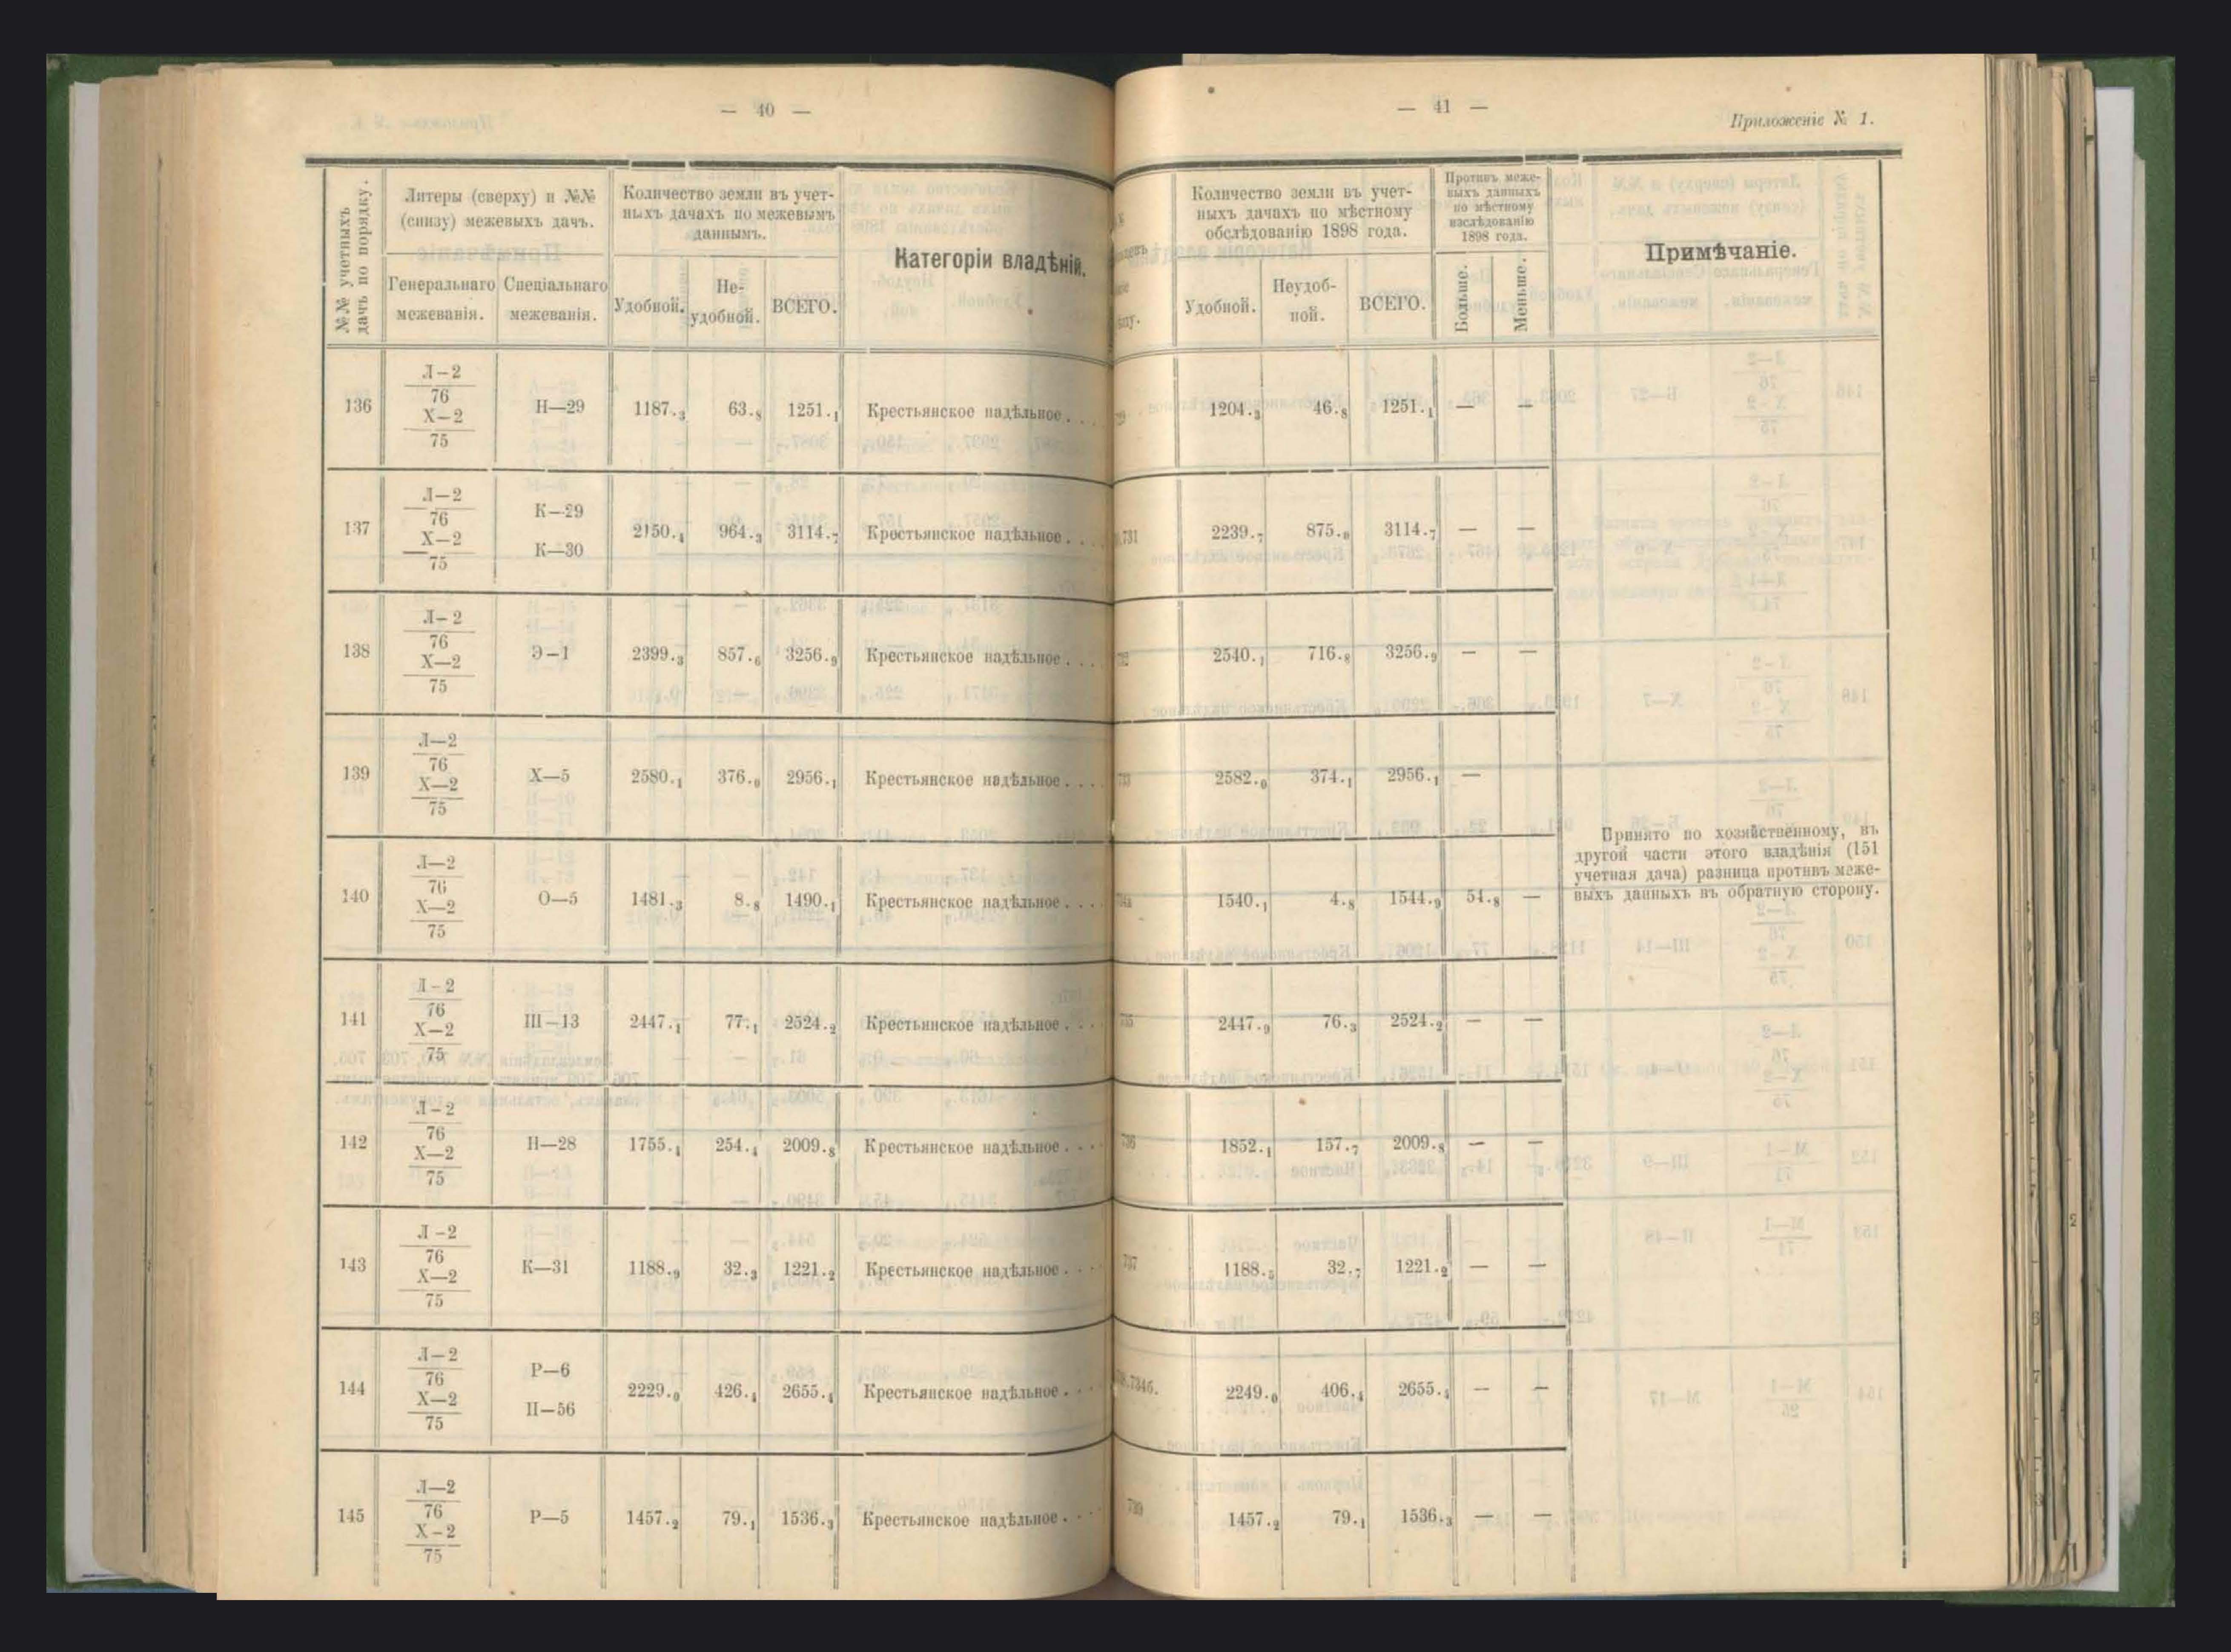 — 40 —
№№ учетныхъ
дачъ по порядку.
Литеры (сверху) и №№
(снизу) межевыхъ дачъ.
Генеральнаго
межеванія.
Спеціальнаго
межеванія.
Количество земли въ учет-
ныхъ дачахъ по межевымъ
даннымъ.
Удобной.
Не-
удобной.
ВСЕГО.
Категоріи владѣній.
136 Л—2 76 Х—2 75 Н—29 1187.3 63.8 1251.1 Крестьянское надѣльное . . .
137 Л—2 76 Х—2 75 К—29 К—30 2150.4 964.3 3114.7 Крестьянское надѣльное . . .
138 Л—2 76 Х—2 75 Э—1 2399.3 857.6 3256.9 Крестьянское надѣльное . . .
139 Л—2 76 Х—2 75 Х—5 2580.1 376.0 2956.1 Крестьянское надѣльное . . .
140 Л—2 76 Х—2 75 О—5 1481.3 8.8 1490.1 Крестьянское надѣльное . . .
141 Л—2 76 Х—2 75 Ш—13 2447.1 77.1 2524.2 Крестьянское надѣльное . . .
142 Л—2 76 Х—2 75 Н—28 1755.4 254.4 2009.8 Крестьянское надѣльное . . .
143 Л—2 76 Х—2 75 К—31 1188.9 32.3 1221.2 Крестьянское надѣльное . . .
144 Л—2 76 Х—2 75 Р—6 П—56 2229.0 426.4 2655.4 Крестьянское надѣльное . . .
145 Л—2 76 Х—2 75 Р—5 1457.2 79.1 1536.3 Крестьянское надѣльное . . .
— 41 —
Приложеніе № 1.
Количество земли въ учет-
ныхъ дачахъ по мѣстному
обслѣдованію 1898 года.
Удобной.
Неудоб-
ной.
ВСЕГО.
Противъ меже-
выхъ данныхъ
по мѣстному
изслѣдованію
1898 года.
Больше.
Меньше.
Примѣчаніе.
1204.3 46.8 1251.1 — —
731 2239.7 875.0 3114.7 — —
2540.1 716.8 3256.9 — —
2582.0 374.1 2956.1 —
1540.1 4.8 1544.9 54.8 —
Принято по хозяйственному, въ
другой части этого владѣнія (151
учетная дача) разница противъ меже-
выхъ данныхъ въ обратную сторону.
2447.9 76.3 2524.2 — —
1852.1 157.7 2009.8 — —
1188.5 32.7 1221.2 — —
734б. 2249.0 406.4 2655.4 — —
1457.2 79.1 1536.3 — —